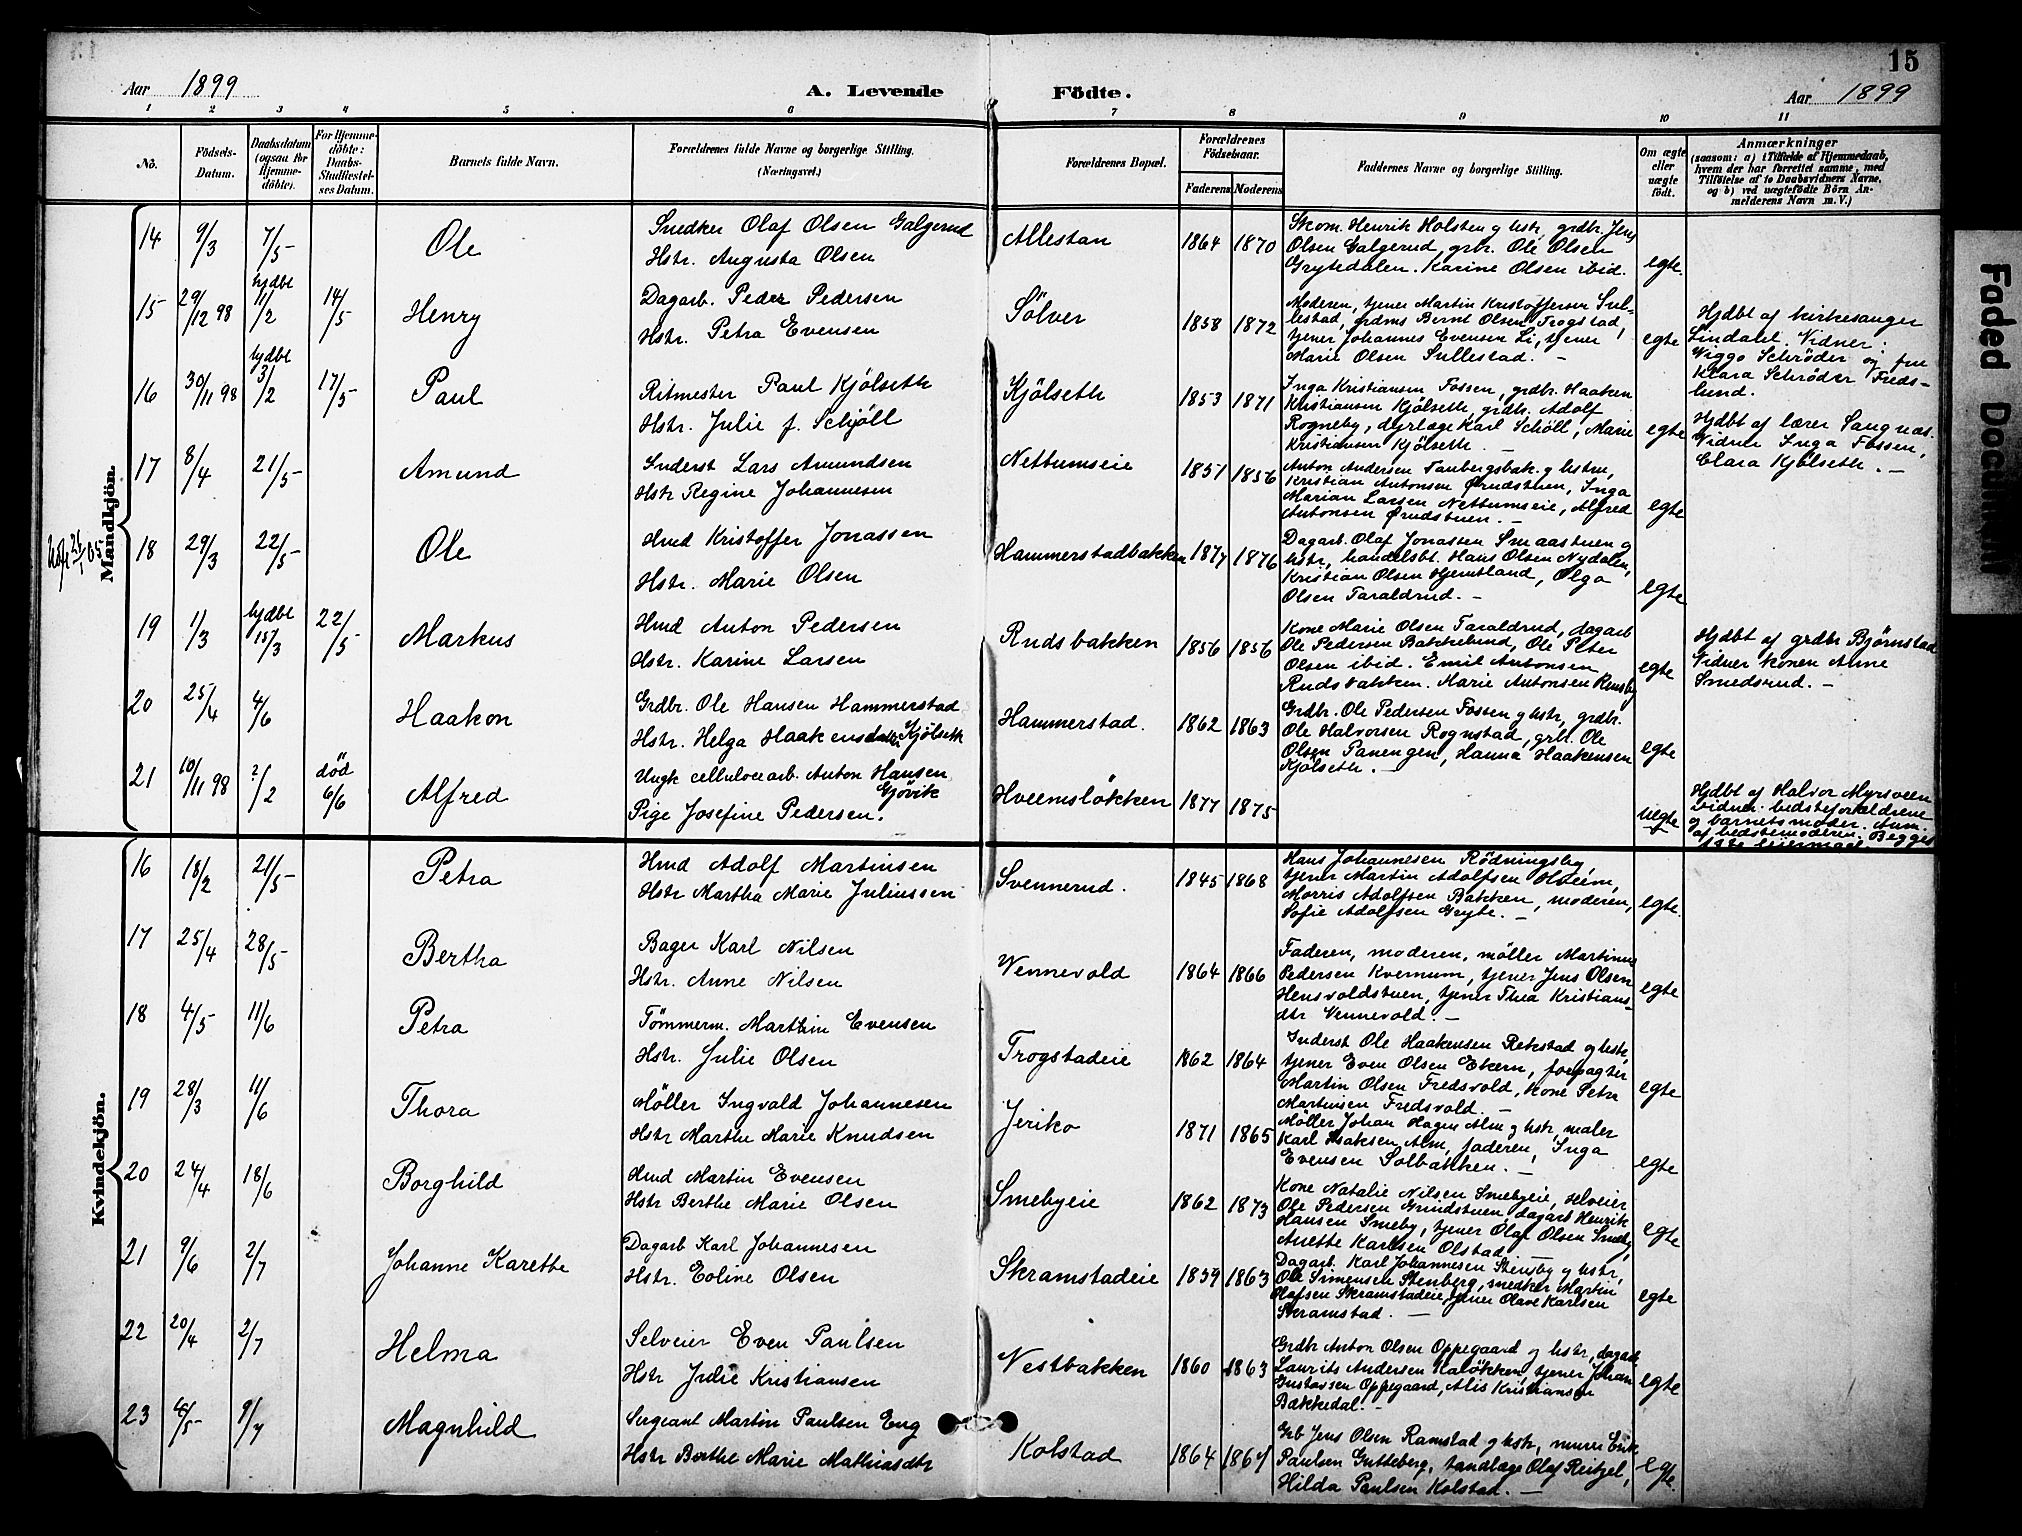 15
Aar 1899 A. Levende Födte. Aar 1899
1 2 3 4 5 6 7 8 9 10 11
No.
Födsels-
Datum.
Daabsdatum
(ogsaa for
Hjemme-
döbte).
For Hjemme-
döbte:
Daabs-
Stadfæstel-
ses Datum.
Barnets fulde Navn.
Forældrenes fulde Navne og borgerlige Stilling.
(Næringsvei.)
Forældrenes Bopæl.
Forældrenes
Födselsaar.
Faderens Moderens
Faddernes Navne og borgerlige Stilling.
Om ægte
eller
uægte
født.
Anmærkninger
(saasom: a) i Tilfælde af Hjemmedaab,
hvem der har forrettet samme, med
Tilföielse af to Daabsvidners Navne,
og b) ved uægtefödte Börn An-
melderens Navn m. V.)
Mandkjön.
14 9/3 7/5 Ole
Snedker Olaf Olsen Galgerud
Hstr. Augusta Olsen
Allestan 1864 1870
Skom. Henrik Holsten g hstr, grdbr. Jens
Olsen Galgerud, grbr. Ole Olsen
Grytedalen. Karine Olsen ibid.
egte.
15 29/12 98 hjdbt 11/2 14/5 Henry
Dagarb. Peder Pedersen
Hstr. Petra Evensen
Sölver 1858 1872
Moderen, tjener Martin Kristoffersen Sul-
lestad, grdms Bernt Olsen Trogstad,
tjener Johannes Evensen Li, tjener
Marie Olsen Sullestad. -
egte
Hjdbt af kirkesanger
Lindahl. Vidner:
Viggo Schröder og fru
Klara Schröder Freds-
lund.
16 30/11 98 hjdbt 3/2 17/5 Paul
Ritmester Paul Kjölseth
Hstr. Julie f. Schjöll
Kjölseth 1853 1871
Inga Kristiansen Fossen, grdbr. Haaken
Kristiansen Kjölseth, grdbr. Adolf
Rogneby, dyrlæge Karl Schöll, Marie
Kristiansen Kjölseth. -
egte
Hjdbt af lærer Sangnæs.
Vidner Inga Fossen,
Clara Kjölseth. -
17 8/4 21/5 Amund
Inderst Lars Amundsen
Hstr Regine Johannesen
Nettumseie 1851 1856
Anton Andersen Taubergsbak. g hstru,
Kristian Antonsen Ørudstuen, Inga
Marian Larsen Nettumseie, Alfred
Antonsen Ørudstuen. -
egte
18 29/3 22/5 Ole
Hmd Kristoffer Jonassen
Hstr. Marie Olsen
Hammerstadbakken 1877 1876
Dagarb. Olaf Jonassen Smaastuen g
hstr, handelsbt. Hans Olsen Nydalen,
Kristian Olsen Hjemstland, Olga
Olsen Taraldrud. -
egte
19 1/3 hjdbt 15/3 22/5 Markus
Hmd Anton Pedersen
Hstr. Karine Larsen
Rudsbakken 1856 1856
Kone Marie Olsen Taraldrud, dagarb
Ole Pedersen Bakkelund, Ole Peter
Olsen ibid. Emil Antonsen
Rudsbakken. Marie Antonsen
egte
Hjdbt af grdbr Bjørnstad
Vidner konen Anne
Smedsrud. -
20 25/4 4/6 Haakon
Grdbr. Ole Hansen Hammerstad
Hstr. Helga Haakensdatter Kjölseth
Hammerstad. 1862 1863
Grdbr. Ole Pedersen Fossen g hstr, grdbr.
Ole Halvorsen Rognstad, grb. Ole
Olsen Panengen, Hanna Haakensen
Kjölseth. -
egte
21 10/11 98 ?/2 död 6/6 Alfred
Ungk cellulocearb. Anton Hansen
Gjövik
Pige Josefine Pedersen.
Hveemslökken 1877 1875
uegte
Hjdbt af Halvor Myrsveen
Vidner: bedsteforældrene
g barnets moder. Anm.
af bedstemoderen. Begges
1ste leiermaal
Kvindekjön.
16 18/2 21/5 Petra
Hmd Adolf Martinsen
Hstr Martha Marie Juliussen
Svennerud. 1845 1868
Hans Johannesen Rödningsby,
tjener Martin Adolfsen Hveem,
Morris Adolfsen Bakken, moderen,
Sofie Adolfsen Gryte. -
egte.
17 25/4 28/5 Bertha
Bager Karl Nilsen
Hstr. Anne Nilsen
Vennevold 1864 1866
Faderen, moderen, möller Martinus
Pedersen Kvernum, tjener Jens Olsen
Hensvoldstuen, tjener Thea Kristians-
dtr Vennevold. -
egte
18 4/5 11/6 Petra
Tömmerm. Marthin Evensen
Hstr. Julie Olsen
Trogstadeie 1862 1864
Inderst Ole Haakensen Rekstad og hstr,
tjener Even Olsen Ekern, forpagter
Martin Olsen Fredsvold, kone Petra
Martinsen Fredsvold. -
egte
19 28/3 11/6 Thora
Möller Ingvald Johannesen
Hstr Marthe Marie Knudsen
Jeriko 1871 1865
Möller Johan Hagen Alm g hstr, maler
Karl Isaksen Alm, faderen, Inga
Evensen Solbakken. -
egte
20 24/4 18/6 Borghild
Hmd Martin Evensen
Hstr Berthe Marie Olsen
Smebyeie 1862 1873
Kone Natalie Nilsen Smebyeie, selveier
Ole Pedersen Grindstuen, dagarb Henrik
Hansen Smeby, tjener Olaf Olsen Smeby,
Anette Karlsen Olstad
egte
21 9/6 2/7 Johanne Karette
Dagarb Karl Johannesen
Hstr. Eoline Olsen
Skramstadeie 1859 1863
Dagarb. Karl Johannesen Stensby g hstr,
Ole Simensen Stenberg, snedker Martin
Olafsen Skramstadeie, tjener Olave Karlsen
Skramstad. -
egte
22 20/4 2/7 Helma
Selveier Even Paulsen
Hstr Julie Kristiansen
Nestbakken 1860 1863
Grdbr Anton Olsen Oppegaard og hstr, dagarb
Laurits Andersen Kalökken, tjener Johan
Gustavsen Oppegaard, Alis Kristiansen
Bækkedal. -
egte
23 9/7 Magnhild
Sergeant Martin Paulsen Eng
Hstr Berthe Marie Mathiasdtr
Kolstad 1864 1867
Grb Jens Olsen Ramstad g hstr, murer Erik
Paulsen Gutteberg, tandlæge Olaf Reitzel,
Hilda Paulsen Kolstad. -
egte
Faded Document